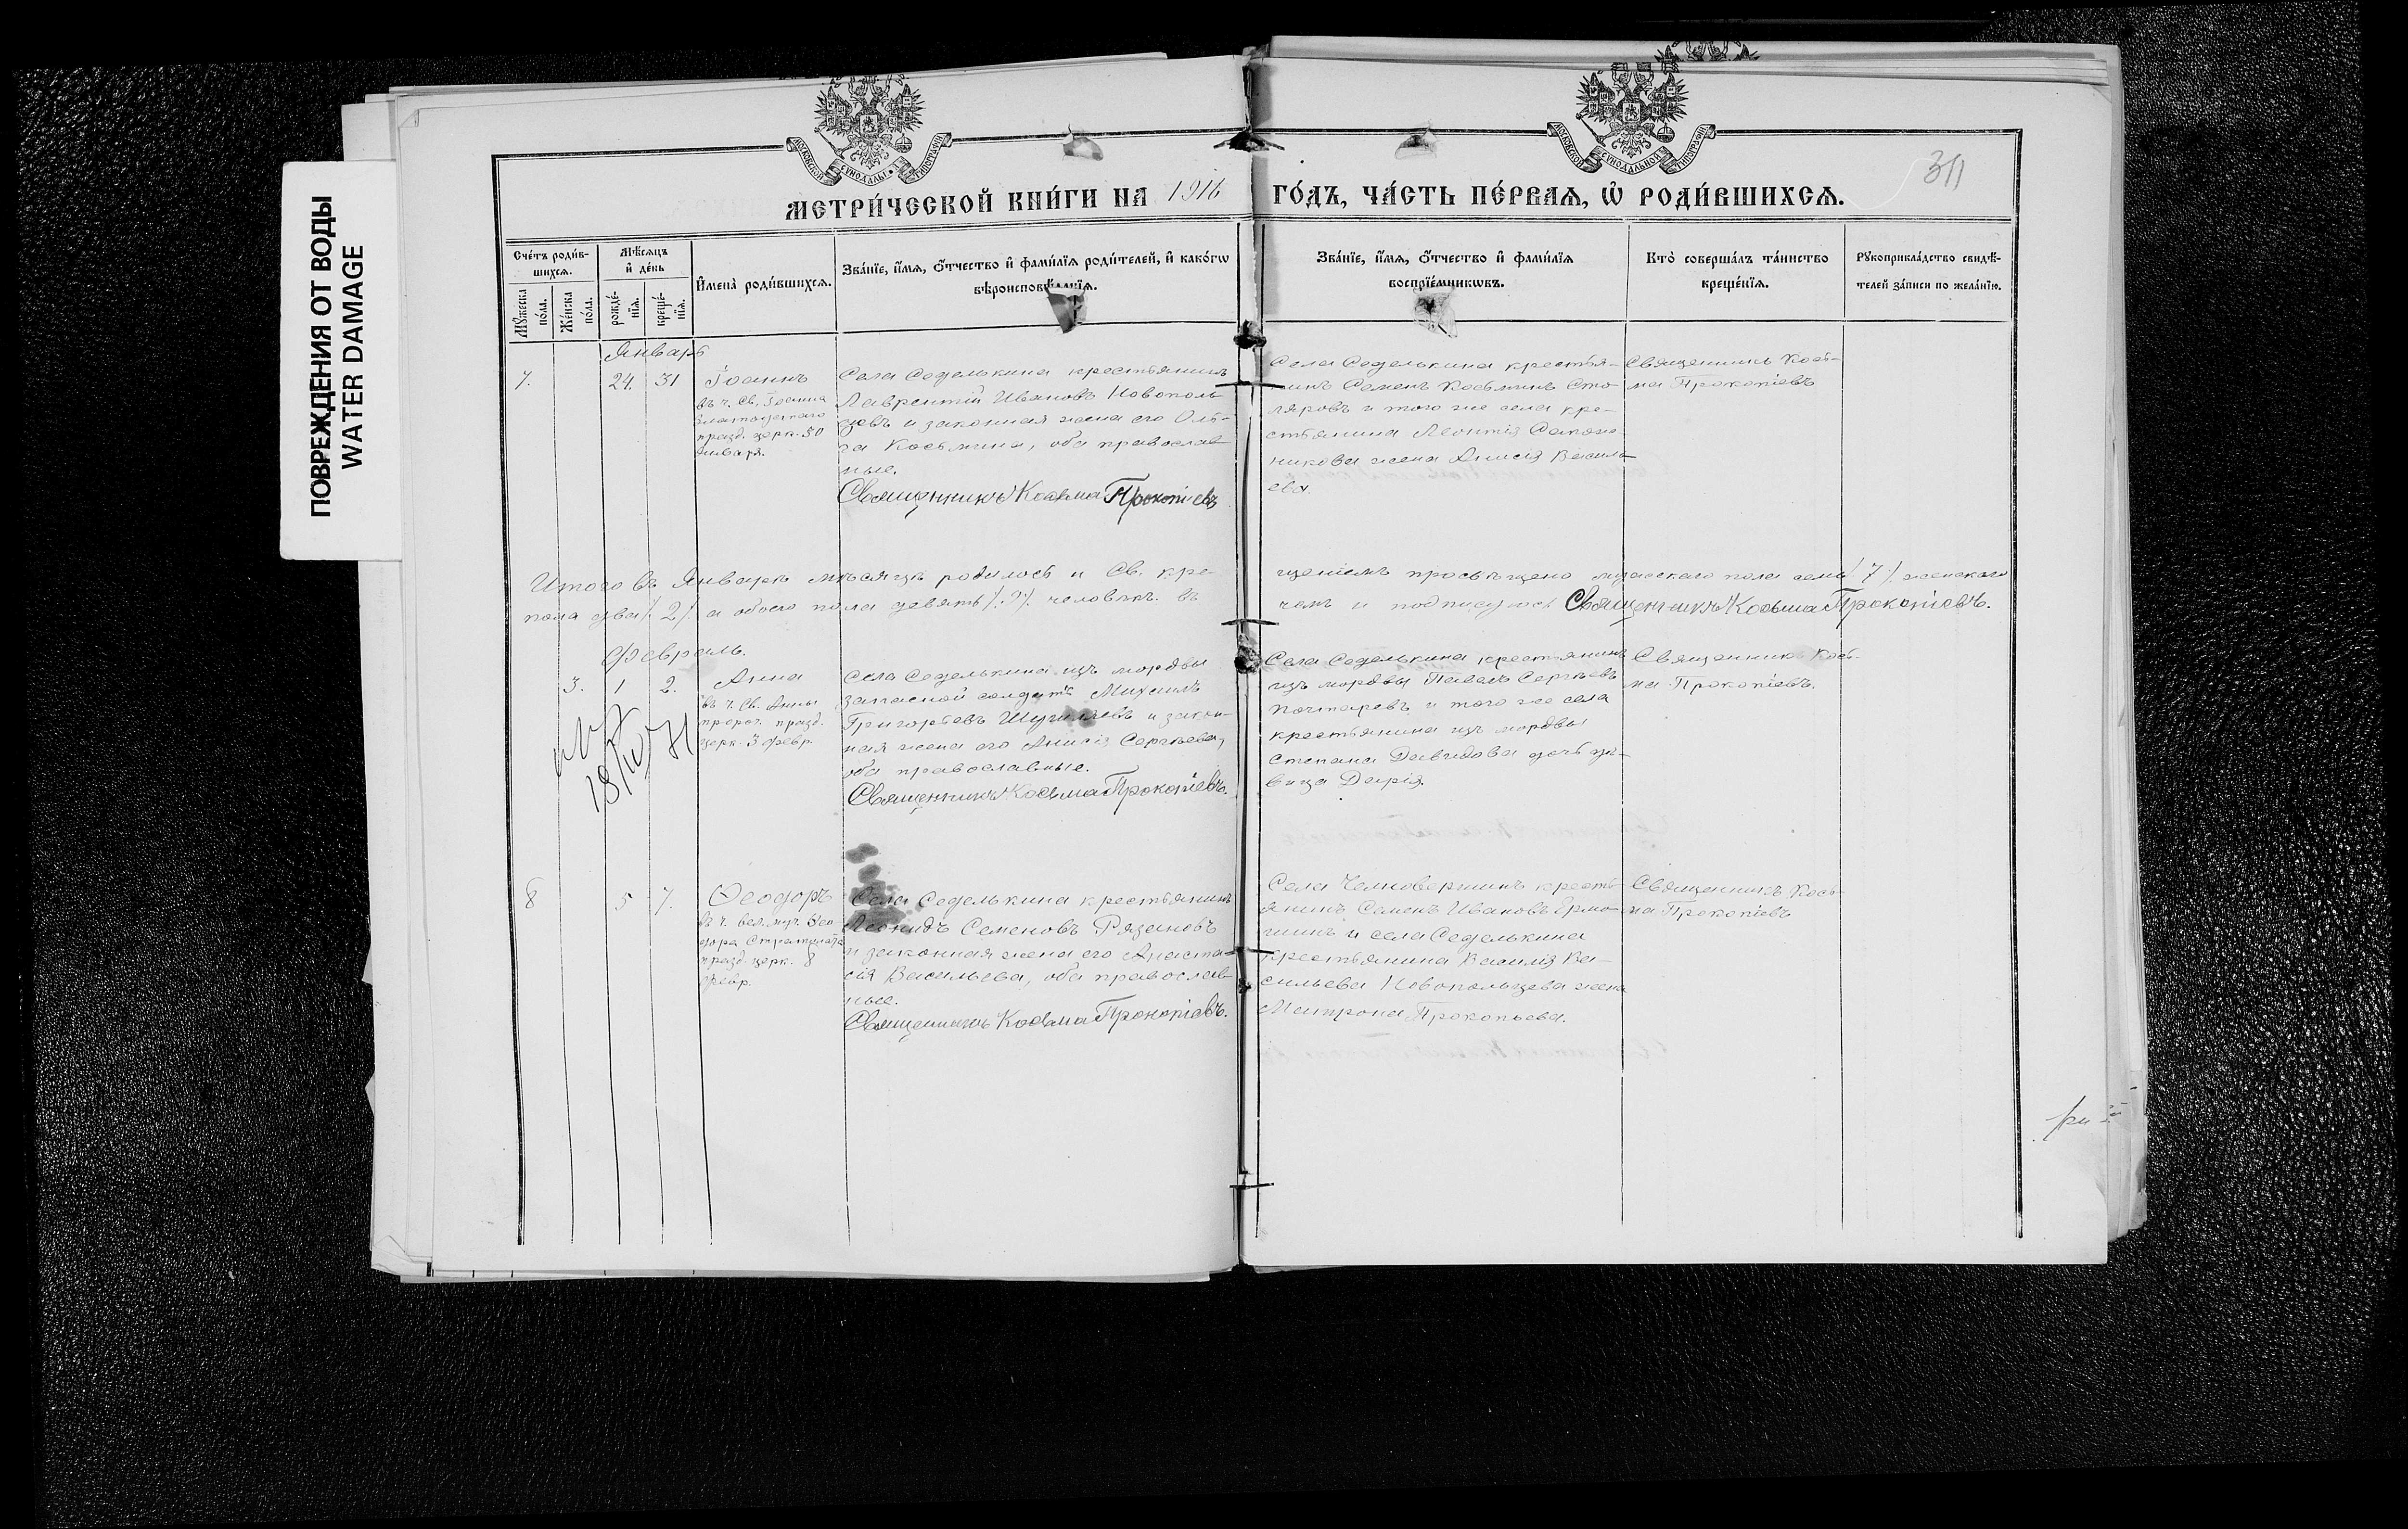 ПОВРЕЖДЕНИЯ ОТ ВОДЫ
WATER DAMAGE
МОСКОВСКОЙ СУНОДАЛЬНОЙ ТИПОГРАФІИ
МЕТРИ́ЧЕСКОЙ КНИ́ГИ НА 1916 ГО́ДЪ, ЧА́СТЬ ПЕ́РВАѦ, Ѡ҆ РОДИ́ВШИХСѦ.
311
Сче́тъ роди́в-
шихсѧ.
Мꙋ́жеска по́ла.
Же́нска по́ла.
Мѣ́сѧцъ
и҆ де́нь
рожде́-
нїѧ.
креще́-
нїѧ.
И҆мена̀ роди́вшихсѧ.
Зва́нїе, и҆́мѧ, ѻ҆́тчество и҆ фами́лїѧ роди́телей, и҆ како́гѡ
вѣроисповѣ́данїѧ.
Зва́нїе, и҆́мѧ, ѻ҆́тчество и҆ фами́лїѧ
воспрїе́мникѡвъ.
Кто̀ соверша́лъ та́инство
креще́нїѧ.
Рꙋкоприкла́дство свидѣ́-
телей за́писи по жела́нїю.
Январь
7. 24. 31
Іоаннъ
въ ч. св. Іоанна
Златоустаго
празд. церк. 30
января.
Села Седелькина крестьянинъ
Лаврентій Ивановъ Новополь-
цевъ и законная жена его Оль-
га Косьмина, оба православ-
ные.
Священникъ Косьма Прокопіевъ
Села Седелькина крестья-
нинъ Семенъ Косьминъ Сто-
ляровъ и того же села кре-
стьянина Леонтія Сапож-
никова жена Анисія Василь-
ева.
Священникъ Кось-
ма Прокопіевъ
Итого въ Январѣ мѣсяцѣ родилось и Св. кре-
щеніемъ просвѣщено мужескаго пола семь /7/. женскаго
пола два /.2/. а обоего пола девять /.9/. человѣкъ. въ
чемъ и подписуюсь Священникъ Косьма Прокопіевъ.
Февраль.
3. 1 2.
18/IV 71
Анна
въ ч. св. Анны
пророч. празд.
церк. 3 февр.
Села Седелькина изъ мордвы
запасной солдатъ Михаилъ
Григорьевъ и закон-
ная жена его Анисія Сергѣева,
оба православные.
Священникъ Косьма Прокопіевъ.
Села Седелькина крестьянинъ
изъ мордвы Павелъ Сергѣевъ
Почтаревъ и того же села
крестьянина изъ мордвы
Степана Давидова дочь дѣ-
вица Дарія.
Священникъ Кось-
ма Прокопіевъ.
8 5 7.
Ѳеодоръ
въ ч. вел. муч. Ѳео-
дора Стратилата
празд. церк. 8
февр.
Села Седелькина крестьянинъ
Леонидъ Семеновъ Рязановъ
и законная жена его Анаста-
сія Васильева, оба православ-
ные.
Священникъ Косьма Прокопіевъ.
Села Челновершинъ кресть-
янинъ Семенъ Ивановъ Ермо-
шинъ и села Седелькина
крестьянина Василія Ва-
сильева Новопольцева жена
Матрона Прокопьева.
Священникъ Кось-
ма Прокопіевъ